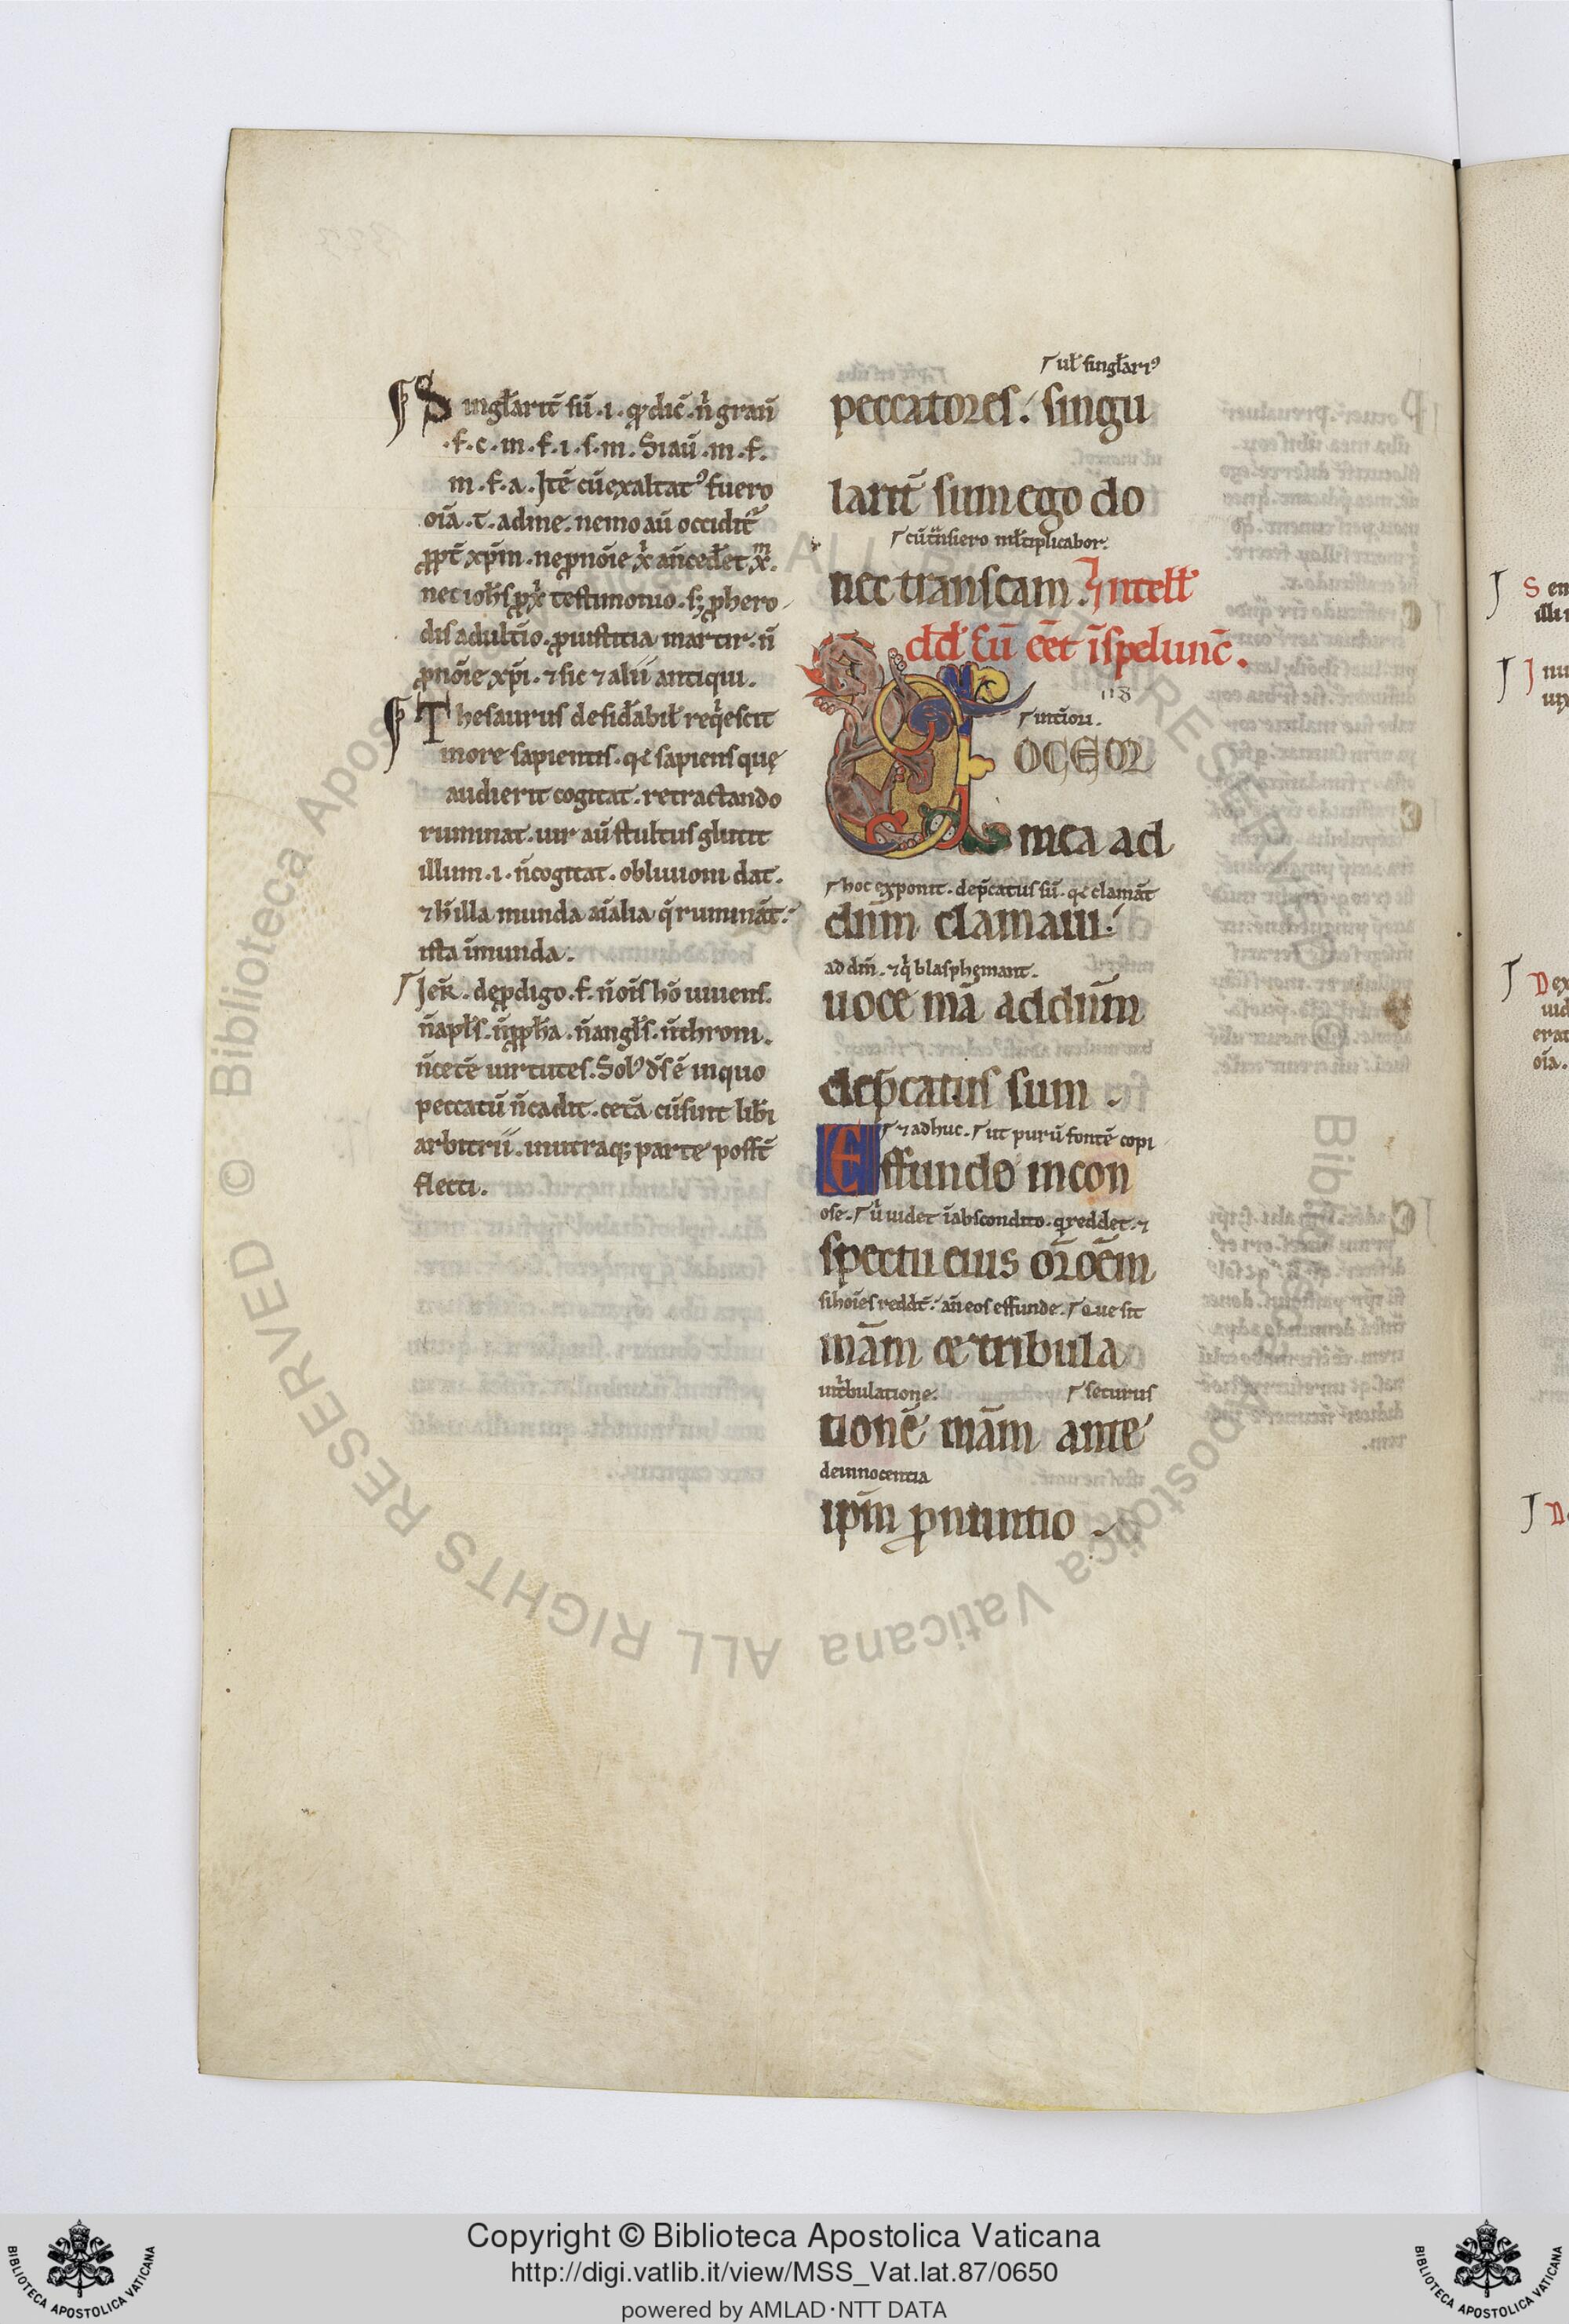 Singl̄arit̄ sū .i. qđ dic̄ . n̄ gran̄
.f. c. m. f. i. s. m. Si aū . m. f.
m. f. a. Itē cū exaltat᷒ fuero
oīa .t. ad me . nemo aū occidit᷑
ꝓpt̄ xp̄m . ne ꝓ noīe
nec ioh̄s ꝓ testimonio . sꝫ ꝓ hero
dis adult̄io . ꝓ iustitia martir . n̄
ꝓ noīe xp̄i . ⁊ sic ⁊ alii antiqui .
Thesaurus desid̄abil̄ reqͥescit
in ore sapientis . qꝛ sapiens quę
audierit cogitat . retractando
ruminat . uir aū stultus glutit
illum .i. n̄ cogitat . obliuioni dat .
⁊ h̄ illa munda aīalia q̄ rumināt .
ista īmunda .
Ier̄ . de ꝓdigo .f. n̄ oīs hō uiuens .
n̄ apl̄s . n̄ ꝓph̄a . n̄ angl̄s . n̄ throni .
n̄ cet̄e uirtutes . Sol᷒ d̄s ē in quo
peccatū n̄ cadit . cet̄a cū sint lib̄i
arbitrii . in utraqꝫ parte poss̄t
flecti .
ul̄ singl̄ari᷒
peccatores . singu
larit̄ sum ego do
cū t̄nsiero ml̄tiplicabor .
nec transeam . Intell̄
dd̄ cū eēt ī spelunc̄ .
118
int̄iori .
VOCEM
mea ad
hoc exponit . dep̄catus sū . qꝛ clamāt
dn̄m clamaui
ad dn̄m . ⁊ qͥ blasphęmant .
uoce mā ad dn̄m
dep̄catus sum .
⁊ adhuc . ut purū fontē copi
Effundo in con
ose . u᷑ uidet ī abscondito . qͥ reddet . ⁊
spectu eius or̄oēm
si hoīes reddt̄ . an̄ eos effunde . Que sit
mām & tribula
in t̄bulatione . securus
tionē mām ante
de innocentia
ip̄m ꝓnuntio
Sem
illu
Inu
ux
Dex
uid
erat
oīa .
D
© Biblioteca Apostolica Vaticana ALL RIGHTS RESERVED
Copyright © Biblioteca Apostolica Vaticana
http://digi.vatlib.it/view/MSS_Vat.lat.87/0650
powered by AMLAD·NTT DATA
BIBLIOTECA APOSTOLICA VATICANA
BIBLIOTECA APOSTOLICA VATICANA